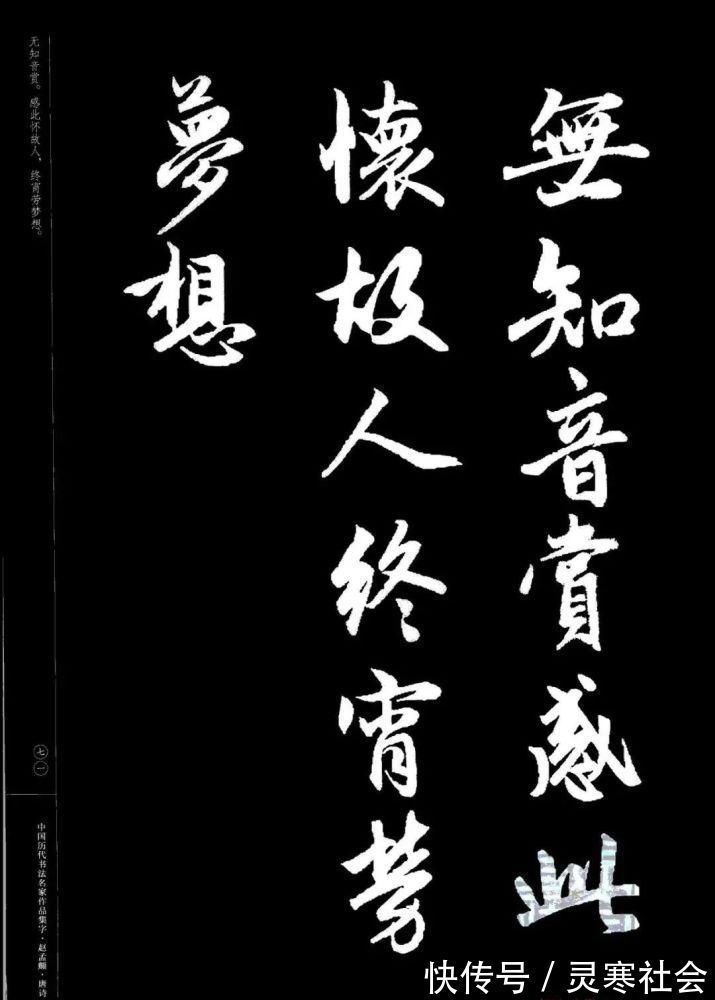 無知音賞感此
懷故人終宵勞
夢想
无知音赏。感此怀故人,终宵劳梦想。
七一
中国历代书法名家作品集字·赵孟頫·唐诗
快传号/灵寒社会